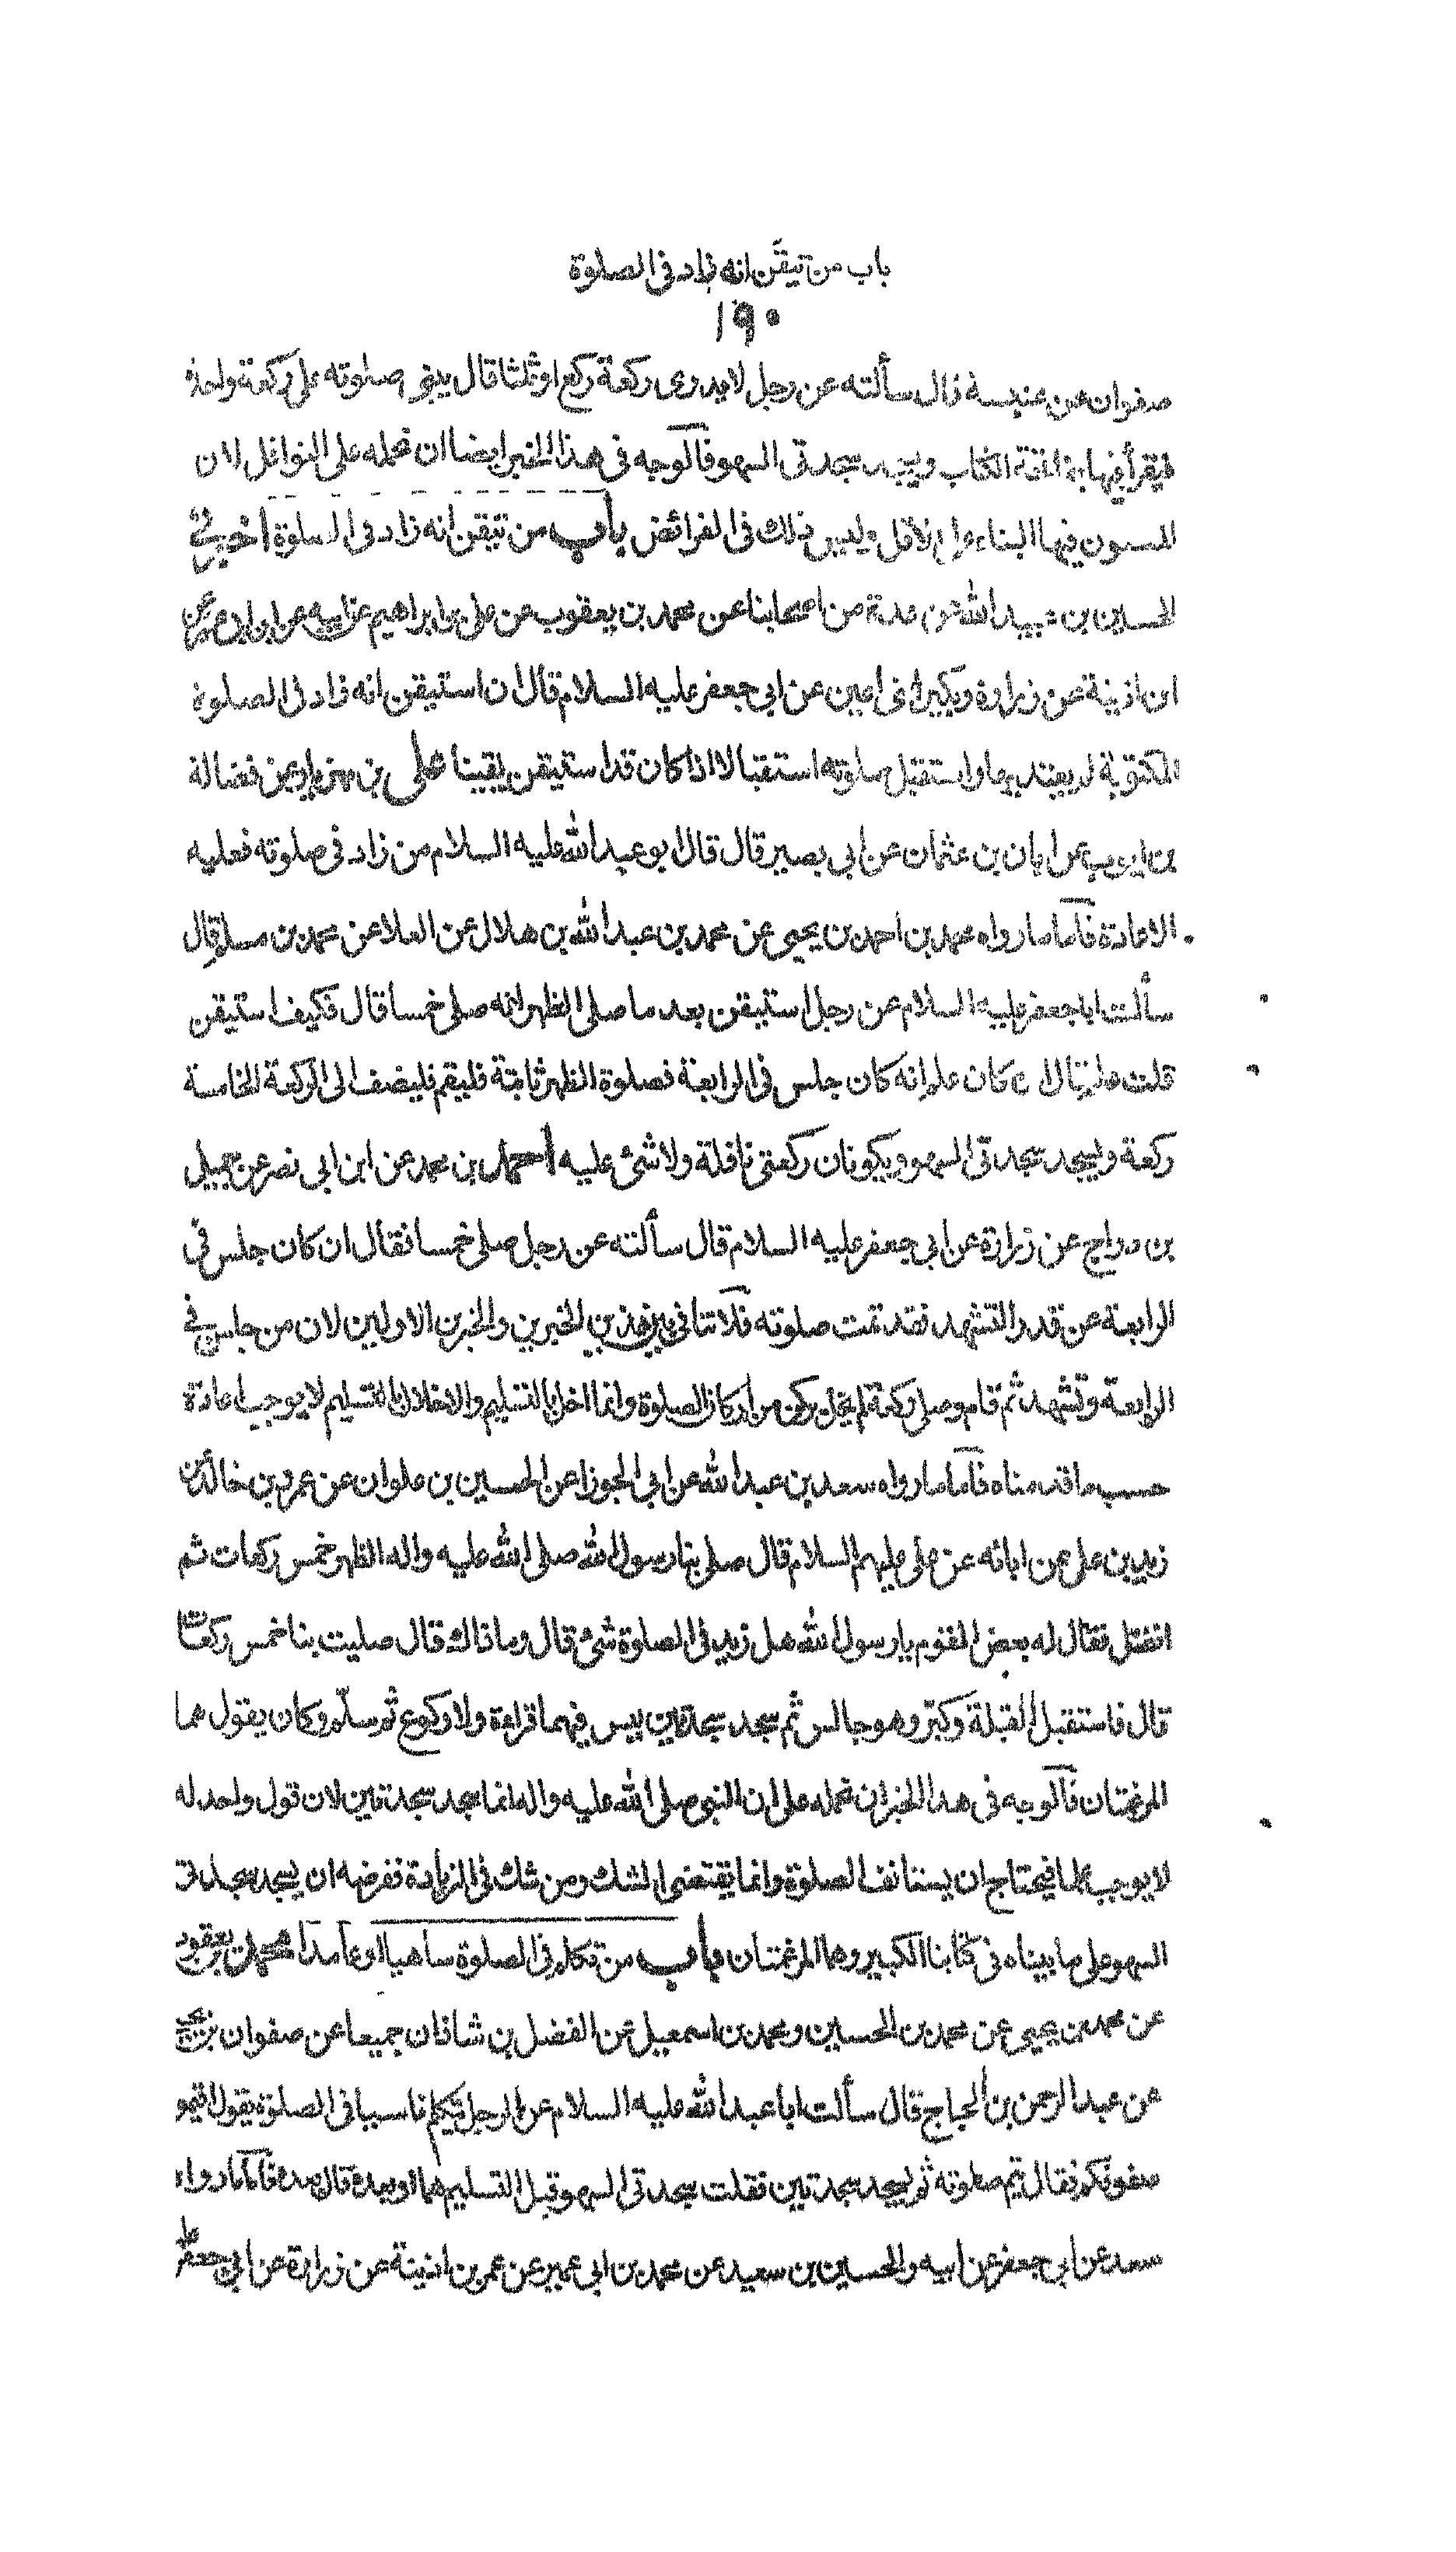 باب من تيقن انه زاد في الصلوة
١٩٠
صفوان عن عنبسة قال سألته عن رجل لايدرى ركعة ركع او ثلثا قال يبنى صلوته على ركعة واحدة
فيقرأ فيها بفاتحة الكتاب ويسجد سجدتى السهو فالوجه في هذا الخبر ايضا ان نحمله على النوافل لان
المسنون فيها البناء على الاقل وليس ذلك في الفرائض باب من تيقن انه زاد في الصلوة اخبرني
الحسين بن عبيد الله عن عدة من اصحابنا عن محمد بن يعقوب عن علي بن ابراهيم عن ابيه عن ابن ابي عمير عن
ابن اذينة عن زرارة وبكير ابني اعين عن ابي جعفر عليه السلام قال ان استيقن انه زاد في الصلوة
المكتوبة لم يعتد بها واستقبل صلوته استقبالا اذا كان قد استيقن يقينا علي بن مهزيار عن فضالة
بن ايوب عن ابان بن عثمان عن ابي بصير قال قال ابو عبد الله عليه السلام من زاد في صلوته فعليه
الاعادة فاما ما رواه محمد بن احمد بن يحيى عن محمد بن عبد الله بن هلال عن العلا عن محمد بن مسلم قال
سألت ابا جعفر عليه السلام عن رجل استيقن بعد ما صلى الظهر انه صلى خمسا قال فكيف استيقن
قلت علم قال ان كان علم انه كان جلس في الرابعة فصلوة الظهر تامة فليقم فليضف الى الركعة الخامسة
ركعة وليسجد سجدتى السهو ويكونان ركعتى نافلة ولا شئ عليه احمد بن محمد عن ابن ابي نصر عن جميل
بن دراج عن زرارة عن ابي جعفر عليه السلام قال سألته عن رجل صلى خمسا فقال ان كان جلس في
الرابعة عن قدر التشهد فقد تمت صلوته فلا تنافي بين هذين الخبرين والخبرين الاولين لان من جلس في
الرابعة وتشهد ثم قام وصلى ركعة لم يخل بركن من اركان الصلوة وانما اخل بالتسليم والاخلال بالتسليم لا يوجب اعادة
حسب ما قدمناه فاما ما رواه سعد بن عبد الله عن ابي الجوزا عن الحسين بن علوان عن عمرو بن خالد عن
زيد بن علي عن ابائه عن علي عليهم السلام قال صلى بنا رسول الله صلى الله عليه واله الظهر خمس ركعات ثم
انفتل فقال له بعض القوم يا رسول الله هل زيد في الصلوة شئ قال وما ذاك قال صليت بنا خمس ركعات
قال فاستقبل القبلة وكبّر وهو جالس ثم سجد سجدتين ليس فيهما قراءة ولا ركوع ثم سلّم وكان يقول هما
المرغمتان فالوجه في هذا الخبر ان نحمله على ان النبي صلى الله عليه واله انما سجد سجدتين لان قول واحد له
لا يوجب علما فيحتاج ان يستانف الصلوة وانما يقتضي الشك ومن شك في الزيادة ففرضه ان يسجد سجدتى
السهو على ما بيناه في كتابنا الكبير وهما المرغمتان باب من تكلم في الصلوة ساهيا او عامدا محمد بن يعقوب
عن محمد بن يحيى عن محمد بن الحسين ومحمد بن اسمعيل عن الفضل بن شاذان جميعا عن صفوان بن يحيى
عن عبد الرحمن بن الحجاج قال سألت ابا عبد الله عليه السلام عن الرجل يتكلم ناسيا في الصلوة يقول اقيموا
صفوفكم فقال يتم صلوته ثم يسجد سجدتين فقلت سجدتى السهو قبل التسليم هما او بعده قال بعده فاما ما رواه
سعد عن ابي جعفر عن ابيه والحسين بن سعيد عن محمد بن ابي عمير عن عمر بن اذينة عن زرارة عن ابي جعفر